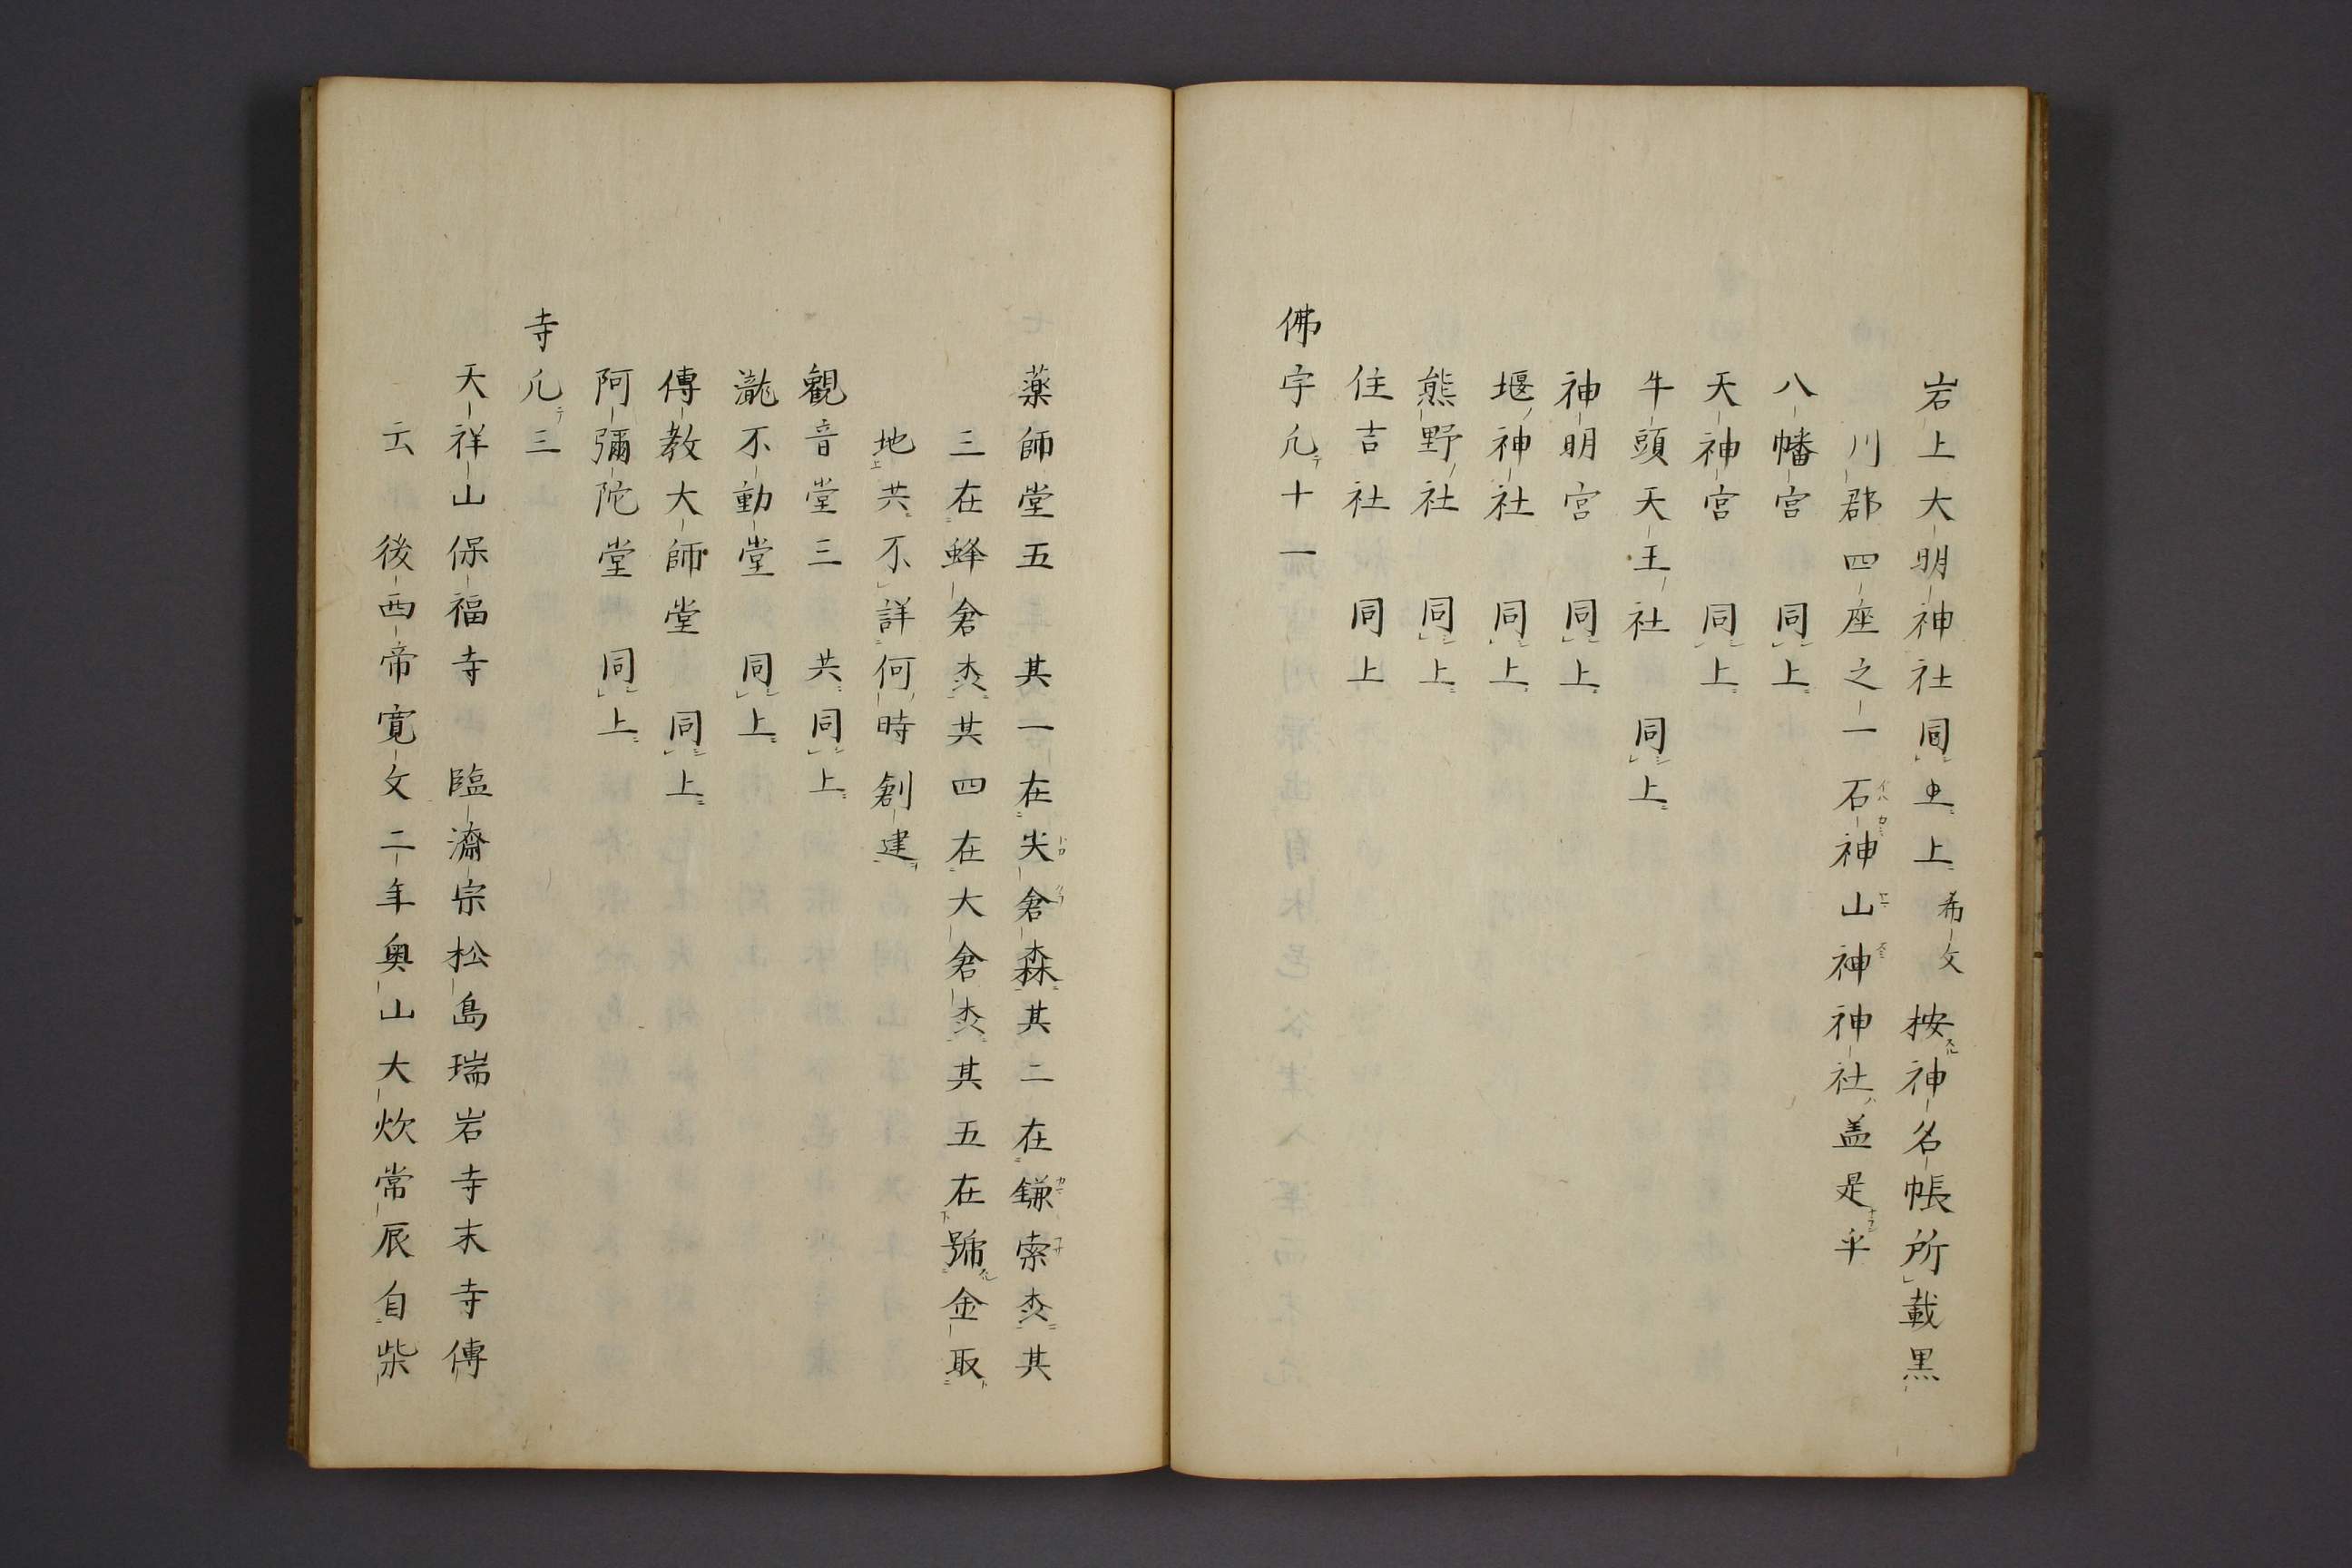 岩上大明神社同上　希文　按神名帳所載黒
川郡四座之一石神山神神社盖是乎
八幡宮　同上
天神宮　同上
牛頭天王社　同上
神明宮　同上
堰神社　同上
熊野社　同上
住吉社　同上
佛宇凢十一
薬師堂五　其一在尖倉森其二在鎌索其
三在蜂倉其四在大倉其五在號金取
地共不詳何時創建
觀音堂三　共同上
瀧不動堂　同上
傳教大師堂　同上
阿彌陀堂　同上
寺凢三
天祥山保福寺　臨濟宗松島瑞岩寺末寺傳
云　後西帝寛文二年奥山大炊常辰自柴